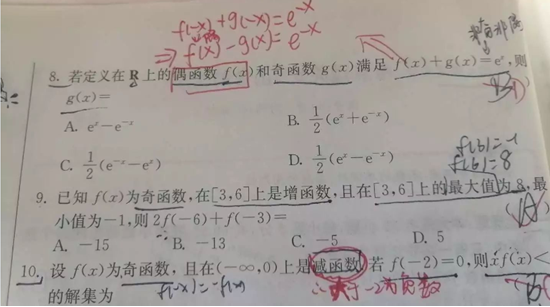 f(-x)+g(-x)=e^{-x}
⇒ f(x)-g(x)=e^{-x}
8. 若定义在 R 上的偶函数 f(x)和奇函数 g(x)满足 f(x)+g(x)=e^x,则
g(x)=
A. e^x-e^{-x} B. \frac{1}{2}(e^x+e^{-x})
C. \frac{1}{2}(e^{-x}-e^x) D. \frac{1}{2}(e^x-e^{-x})
f(6)=8
9. 已知 f(x)为奇函数,在[3,6]上是增函数,且在[3,6]上的最大值为 8,最
小值为-1,则 2f(-6)+f(-3)=
A. -15 B. -13 C. -5 D. 5
10. 设 f(x)为奇函数,且在(-∞,0)上是减函数,若 f(-2)=0,则xf(x)<
的解集为
f(-x)=-f(x)